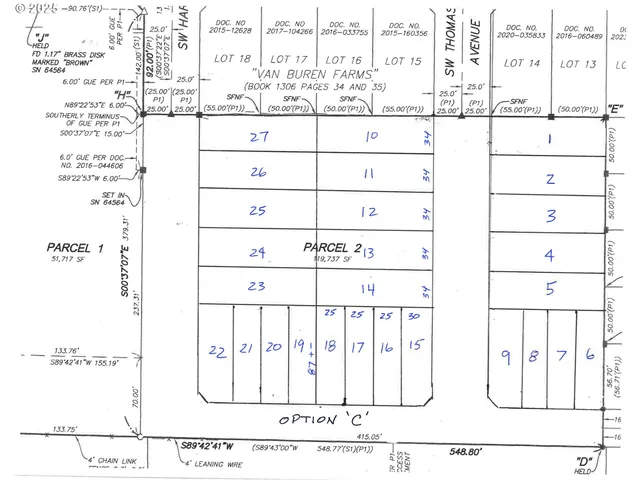 © 2025
90.76'(S1)
6.00' GUE
PER P1
25.0'
142.00'(S1)
92.00'(P1)
S00°37'22"E
S00°37'07"E
13
SW HAR
DOC. NO.
2015-12628
DOC. NO.
2017-104266
DOC. NO.
2016-033755
DOC. NO.
2015-160356
SW THOMAS
AVENUE
DOC. NO.
2020-035833
DOC. NO.
2016-060489
"J"
HELD
FD 1.17" BRASS DISK
MARKED "BROWN"
SN 64564
LOT 18
LOT 17
LOT 16
LOT 15
LOT 14
LOT 13
"VAN BUREN FARMS"
(BOOK 1306 PAGES 34 AND 35)
6.00' GUE PER P1
"H"
(25.00')
(P1)
25.00'
(25.00')
(P1)
25.00'
25.0'
N89°22'53"E 6.00'
SOUTHERLY TERMINUS
OF GUE PER P1
S00°37'07"E 15.00'
SFNF
SFNF
(55.00'(P1))
(50.00'(P1))
(50.00'(P1))
(55.00'(P1))
25.0'
(25.0')
(P1)
25.00'
25.0'
(25.0')
(P1)
25.00'
SFNF
(55.00'(P1))
(50.00'(P1))
"E"
6.0' GUE PER DOC.
NO. 2016-044606
S89°22'53"W 6.00'
SET IN
SN 64564
27
10
34
26
11
34
25
12
34
24
PARCEL 2
119,737 SF
13
34
23
14
34
1
2
3
4
5
50.00'(P1)
50.00'(P1)
50.00'(P1)
50.00'(P1)
56.70'
(56.71'(P1))
PARCEL 1
51,717 SF
S00°37'07"E
379.31'
237.31'
25
25
25
30
22
21
20
19
87 ±
18
17
16
15
9
8
7
6
133.76'
S89°42'41"W 155.19'
70.00'
OPTION 'C'
16
16
133.75'
S89°42'41"W
(S89°43'00"W
415.05'
548.77'(S1)(P1))
548.80'
4' CHAIN LINK
4' LEANING WIRE
"D"
HELD